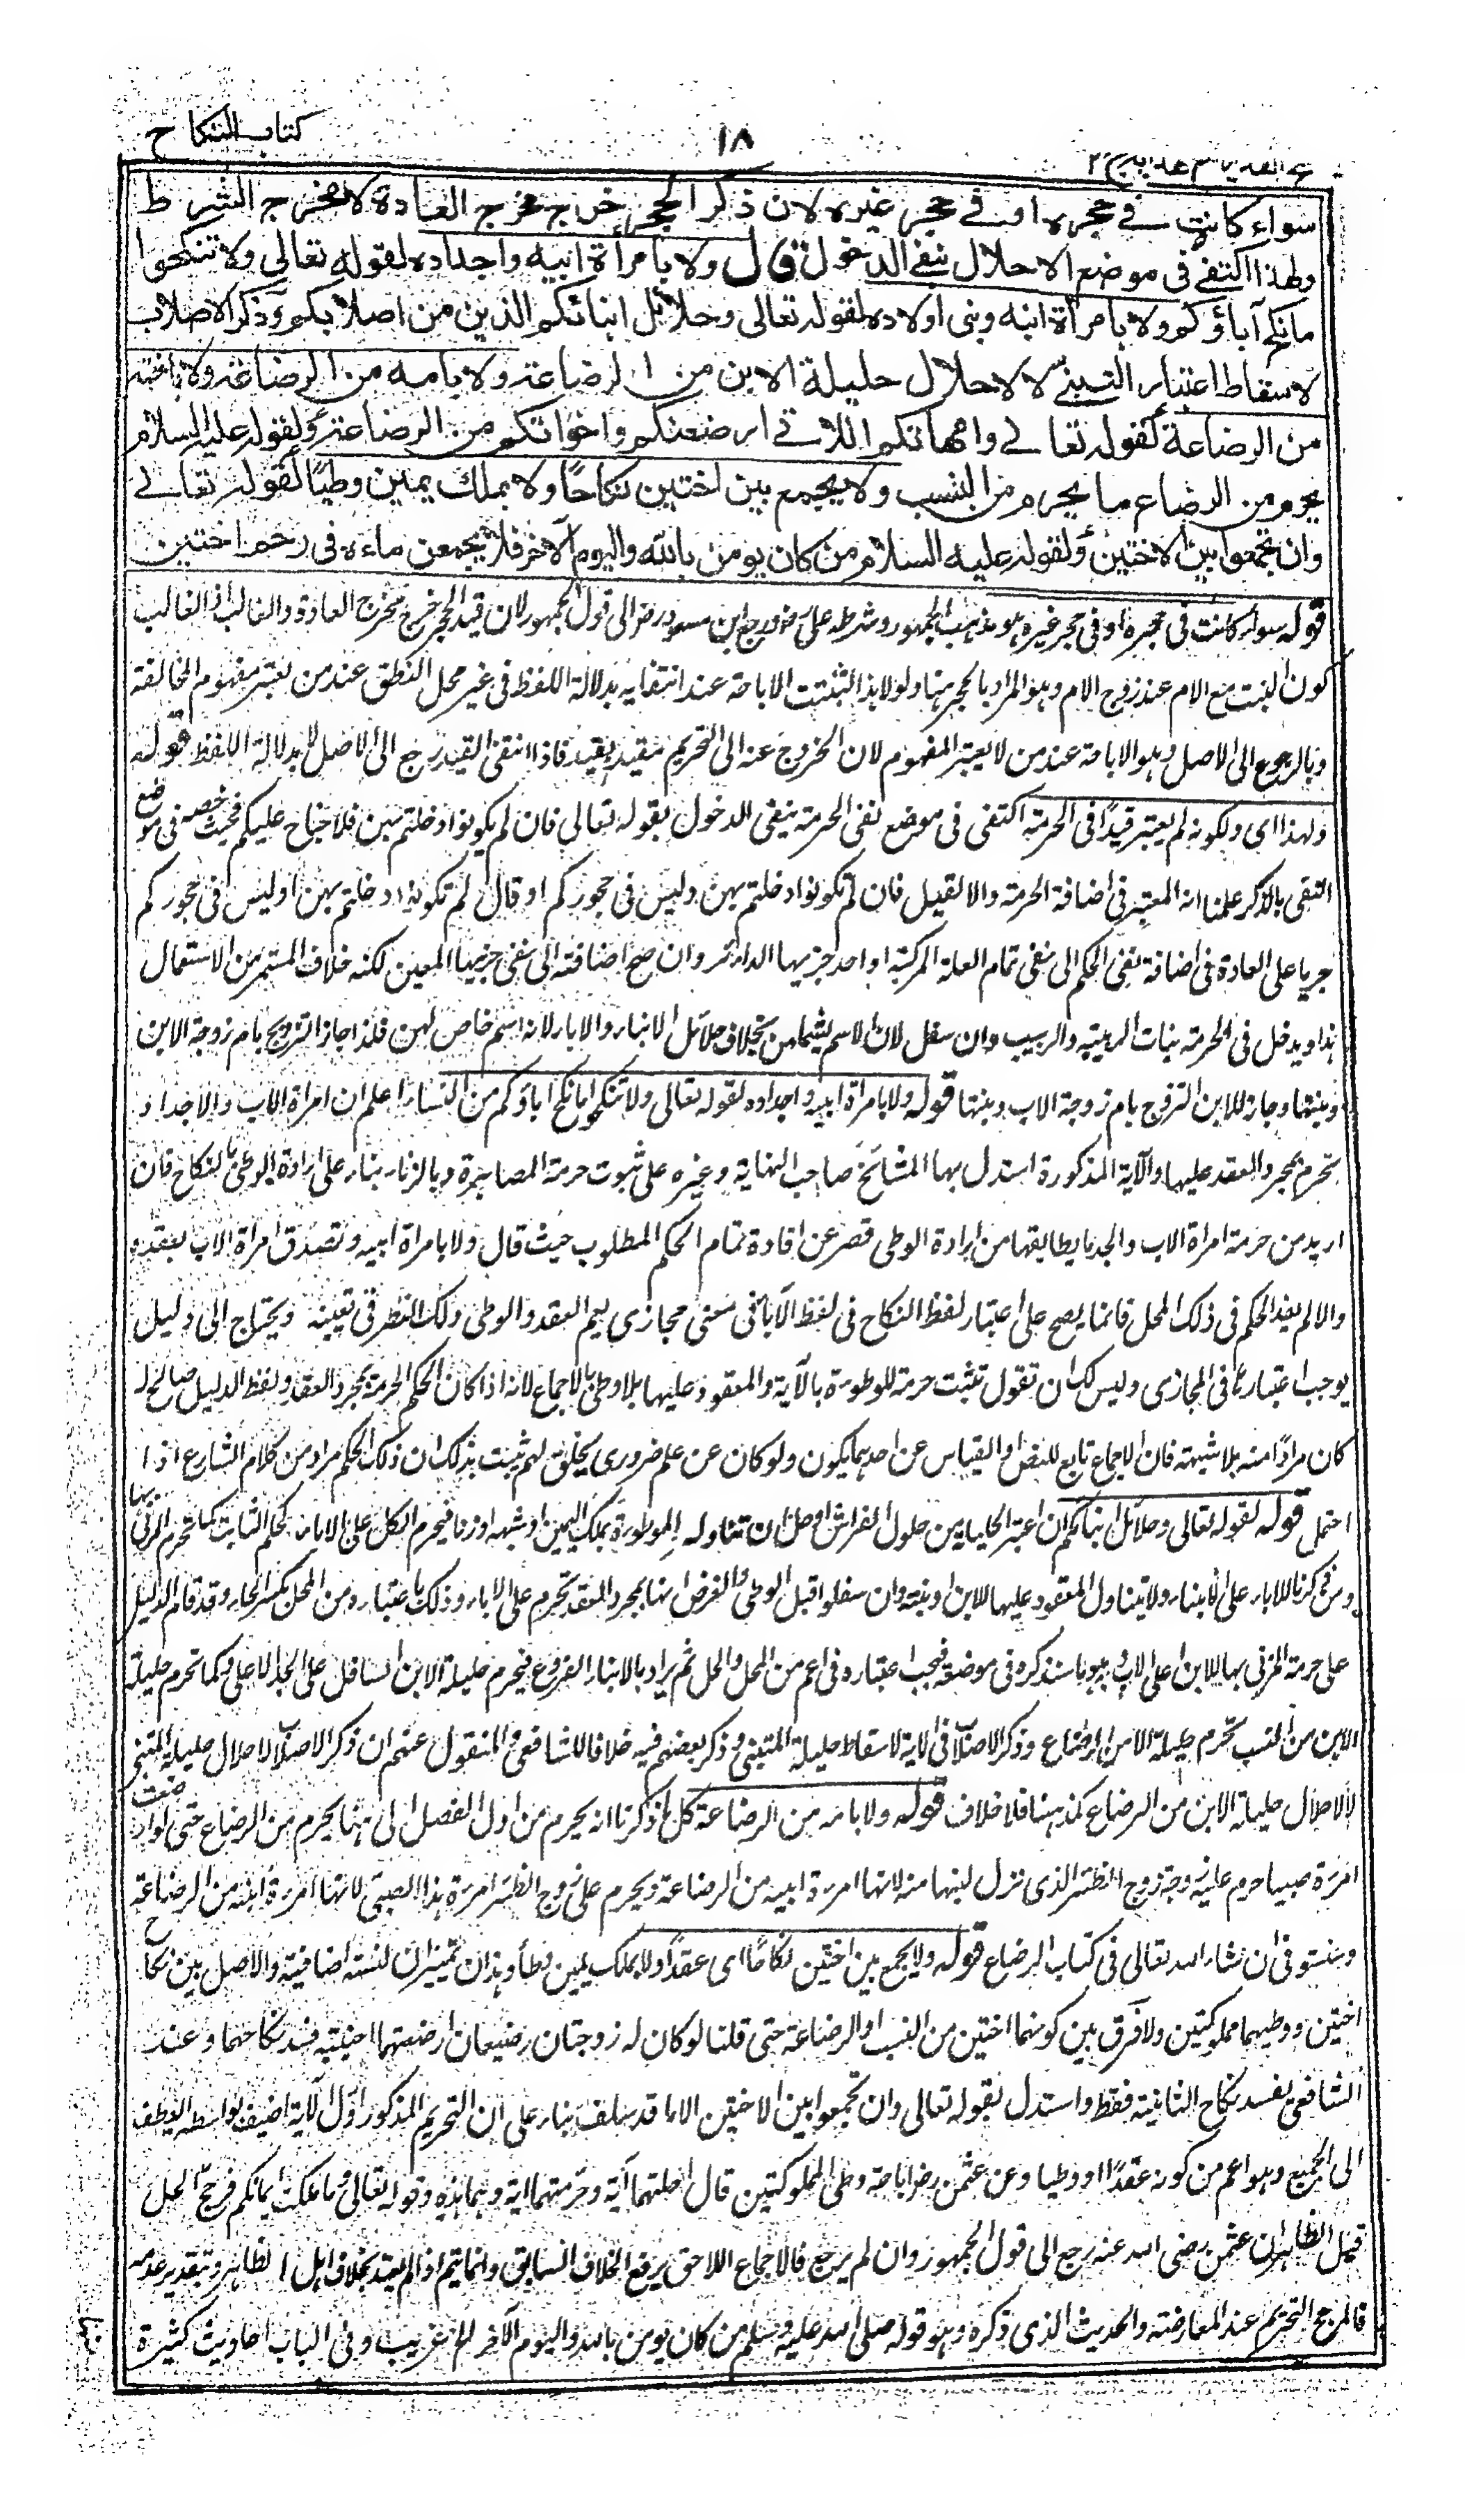 كتاب النكاح
١٨
سواء كانت في حجره او في حجر غيره لان ذكر الحجر خرج مخرج العادة لا مخرج الشرط
ولهذا اكتفى في موضع الاحلال بنفي الدخول قال ولا بامرأة ابيه واجداده لقوله تعالى ولا تنكحوا
ما نكح آباؤكم ولا بامرأة ابنه وبنى اولاده لقوله تعالى وحلائل ابنائكم الذين من اصلابكم وذكر الاصلاب
لاسقاط اعتبار التبني لا لاحلال حليلة الابن من الرضاعة ولا بامه من الرضاعة ولا باخته
من الرضاعة لقوله تعالى وامهاتكم اللاتي ارضعنكم واخواتكم من الرضاعة ولقوله عليه السلام
يحرم من الرضاع ما يحرم من النسب ولا يجمع بين اختين نكاحًا ولا بملك يمين وطيًا لقوله تعالى
وان تجمعوا بين الاختين ولقوله عليه السلام من كان يومن بالله واليوم الآخر فلا يجمعن ماءه في رحم اختين
قوله سواء كانت في حجره او في حجر غيره هو مذهب الجمهور وشرطه علي رض ورجع ابن مسعود رض الى قول الجمهور لان قيد الحجر خرج مخرج العادة والغالب اذ الغالب
كون البنت مع الام عند زوج الام وهو المراد بالحجر هنا ولولا هذا لثبتت الاباحة عند انتفايه بدلالة اللفظ في غير محل النطق عند من يعتبر مفهوم المخالفة
وبالرجوع الى الاصل وهو الاباحة عند من لا يعتبر المفهوم لان الخروج عنه الى التحريم مقيد بقيد فاذا انتفى القيد رجع الى الاصل لا بدلالة اللفظ قوله
ولهذا اى ولكونه لم يعتبر قيدًا في الحرمة اكتفى في موضع نفى الحرمة بنفى الدخول بقوله تعالى فان لم تكونوا دخلتم بهن فلا جناح عليكم فحيث خصه في موضع
النفى بالذكر علمنا انه المعتبر في اضافة الحرمة والا لقيل فان لم تكونوا دخلتم بهن وليس في حجوركم او قال لم تكونوا دخلتم بهن او ليس في حجوركم
جريا على العادة في اضافة نفى الحكم الى نفى تمام العلة المركبة او احد جزيها الدائر وان صح اضافته الى نفى جزيها المعين لكنه خلاف المستمر من الاستعمال
هذا ويدخل في الحرمة بنات الربيبة والربيب وان سفل لان الاسم يشملهن بخلاف حلائل الابناء والاباء لانه اسم خاص لهن فلذا جاز التزوج بام زوجة الابن
وبنتها وجاز للابن التزوج بام زوجة الاب وبنتها قوله ولا بامرأة ابيه واجداده لقوله تعالى ولا تنكحوا ما نكح آباؤكم من النساء اعلم ان امرأة الاب والاجداد
تحرم بمجرد العقد عليها والآية المذكورة استدل بها المشائخ صاحب النهاية وغيره على ثبوت حرمة المصاهرة وبالزنا بناء على ارادة الوطى بالنكاح فان
اريد من حرمة امرأة الاب والجد ما يطابقها من ارادة الوطى قصر عن افادة تمام الحكم المطلوب حيث قال ولا بامرأة ابيه وتصدق امرأة الاب بعقده
والا لم يفد الحكم في ذلك المحل فانما يصح على اعتبار لفظ النكاح في لفظ الآباء في معنى مجازى يعم العقد والوطى ولك النظر في تعيينه ويحتاج الى دليل
يوجب اعتباره في المجازى وليس لك ان تقول تثبت حرمة الموطورة بالآية والمعقود عليها بلا وطى بالاجماع لانه اذا كان الحكم الحرمة بمجرد العقد ولفظ الدليل صالح له
كان مرادًا منه بلا شبهة فان الاجماع تابع للنص او القياس عن احدهما يكون ولو كان عن علم ضرورى يخلق لهم ثبت بذلك ان ذلك الحكم مراد من كلام الشارع اذا
احتمل قوله لقوله تعالى وحلائل ابنائكم ان اعتبر الحليلة من حلول الفراش او حل ان تتناوله الموطورة بملك اليمين او شبهه او زنا فيحرم الكل على الآباء كحكم الثابت كما تحرم المزنى بها
على الابناء ولا يتناول المعقود عليها للابن او بنيه وان سفلوا قبل الوطى والغرض انها بمجرد العقد تحرم على الآباء وذلك باعتباره من المحل بكسر الحاء وقد قام الدليل
على حرمة المزنى بها للابن على الاب هو ما سنذكره في موضعه فيجب اعتباره في اعم من المحل والحل ثم يراد بالابناء الفروع فيحرم حليلة الابن السافل على الجد الاعلى وكما تحرم حليلة
الابن من النسب تحرم حليلة الابن من الرضاع وذكر الاصلاب في الآية لاسقاط حليلة المتبنى وذكر بعضهم فيه خلافا للشافعى والمنقول عنهم ان ذكر الاصلاب لاحلال حليلة المتبنى
لا لاحلال حليلة الابن من الرضاع كمذهبنا فلا خلاف قوله ولا بامه من الرضاعة كل ما ذكرنا انه يحرم من اول الفصل الى هنا يحرم من الرضاع حتى لو ارضعت
امرءة صبيا حرم عليه زوجة زوج الظئر الذى نزل لبنها منه لانها امرءة ابيه من الرضاعة ويحرم على زوج الظئر امرءة هذا الصبى لانها امرءة ابنه من الرضاعة
وسنستوفى ان شاء الله تعالى في كتاب الرضاع قوله ولا يجمع بين اختين نكاحًا اى عقدًا ولا بملك يمين وطأ وهذان تمييزان لنسبة اضافية والاصل بين نكاح
اختين ووطيهما مملوكتين ولا فرق بين كونهما اختين من النسب او الرضاعة حتى قلنا لو كان له زوجتان رضيعتان ارضعتهما اجنبية فسد نكاحهما وعند
الشافعى يفسد نكاح الثانية فقط واستدل بقوله تعالى وان تجمعوا بين الاختين الا ما قد سلف بناء على ان التحريم المذكور اول الآية اضيف بواسطة العطف
الى الجمع وهو اعم من كونه عقدًا او وطيا وعن عثمن رض اباحة وطى المملوكتين قال احلتهما آية وحرمتهما آية وهما هذه وقوله تعالى وما ملكت ايمانكم فرجح الحل
قيل الظاهر ان عثمن رضى الله عنه رجع الى قول الجمهور وان لم يرجع فالاجماع اللاحق يرفع الخلاف السابق وانما يتم اذا لم يعتد بخلاف اهل الظاهر وبتقدير عدمه
فالمرجح التحريم عند المعارضة والحديث الذى ذكره وهو قوله صلى الله عليه وسلم من كان يومن بالله واليوم الآخر الخ غريب وفي الباب احاديث كثيرة